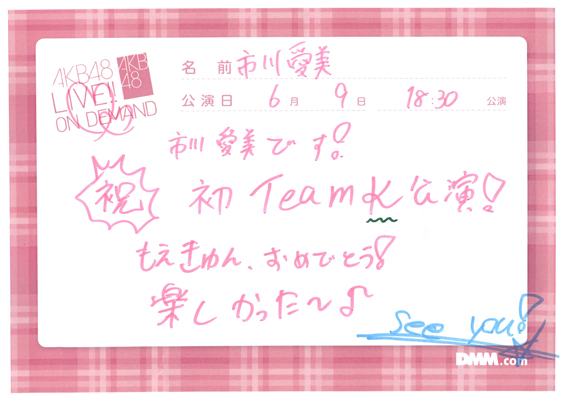 AKB48
LIVE!!
ON DEMAND
AKB
48
名前 市川愛美
公演日 6月 9日 18:30 公演
市川愛美です!
祝 初 TeamK公演!
もえきゅん、おめでとう!
楽しかった〜♪
see you!
DMM.com